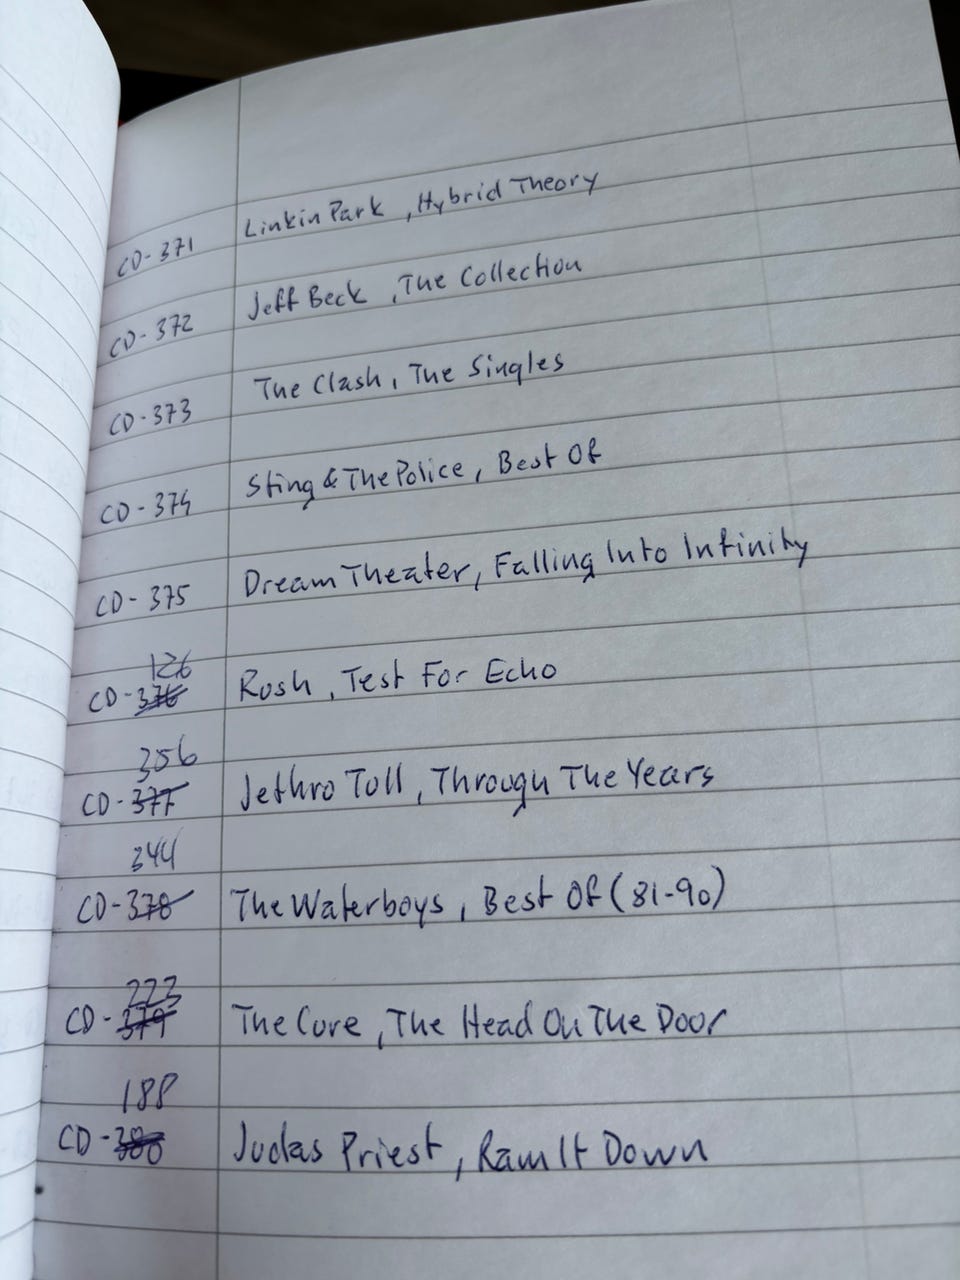 CD-371 Linkin Park, Hybrid Theory
CD-372 Jeff Beck, The Collection
CD-373 The Clash, The Singles
CD-374 Sting & The Police, Best Of
CD-375 Dream Theater, Falling Into Infinity
126
CD-376 Rush, Test For Echo
356
CD-377 Jethro Tull, Through The Years
344
CD-378 The Waterboys, Best Of (81-90)
223
CD-379 The Cure, The Head On The Door
188
CD-380 Judas Priest, Ram It Down